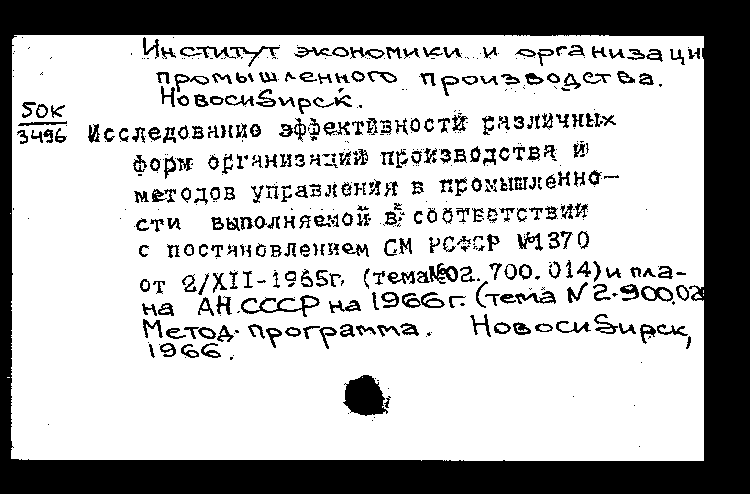 Институт экономики и организаци
промышленного производства.
Новосибирск.
50К
3496
Исследование эффективности различных
форм организаций производства и
методов управления в промышленно-
сти выполняемой в соответствии
с постановлением СМ РСФСР №1370
от 2/XII-1965г. (тема №02.700.014) и пла-
на АН.СССР на 1966 г. (тема N 2.900.02
Метод. программа. Новосибирск,
1966.